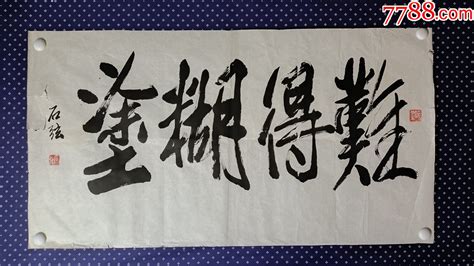 7788.com
難得糊塗
石弦